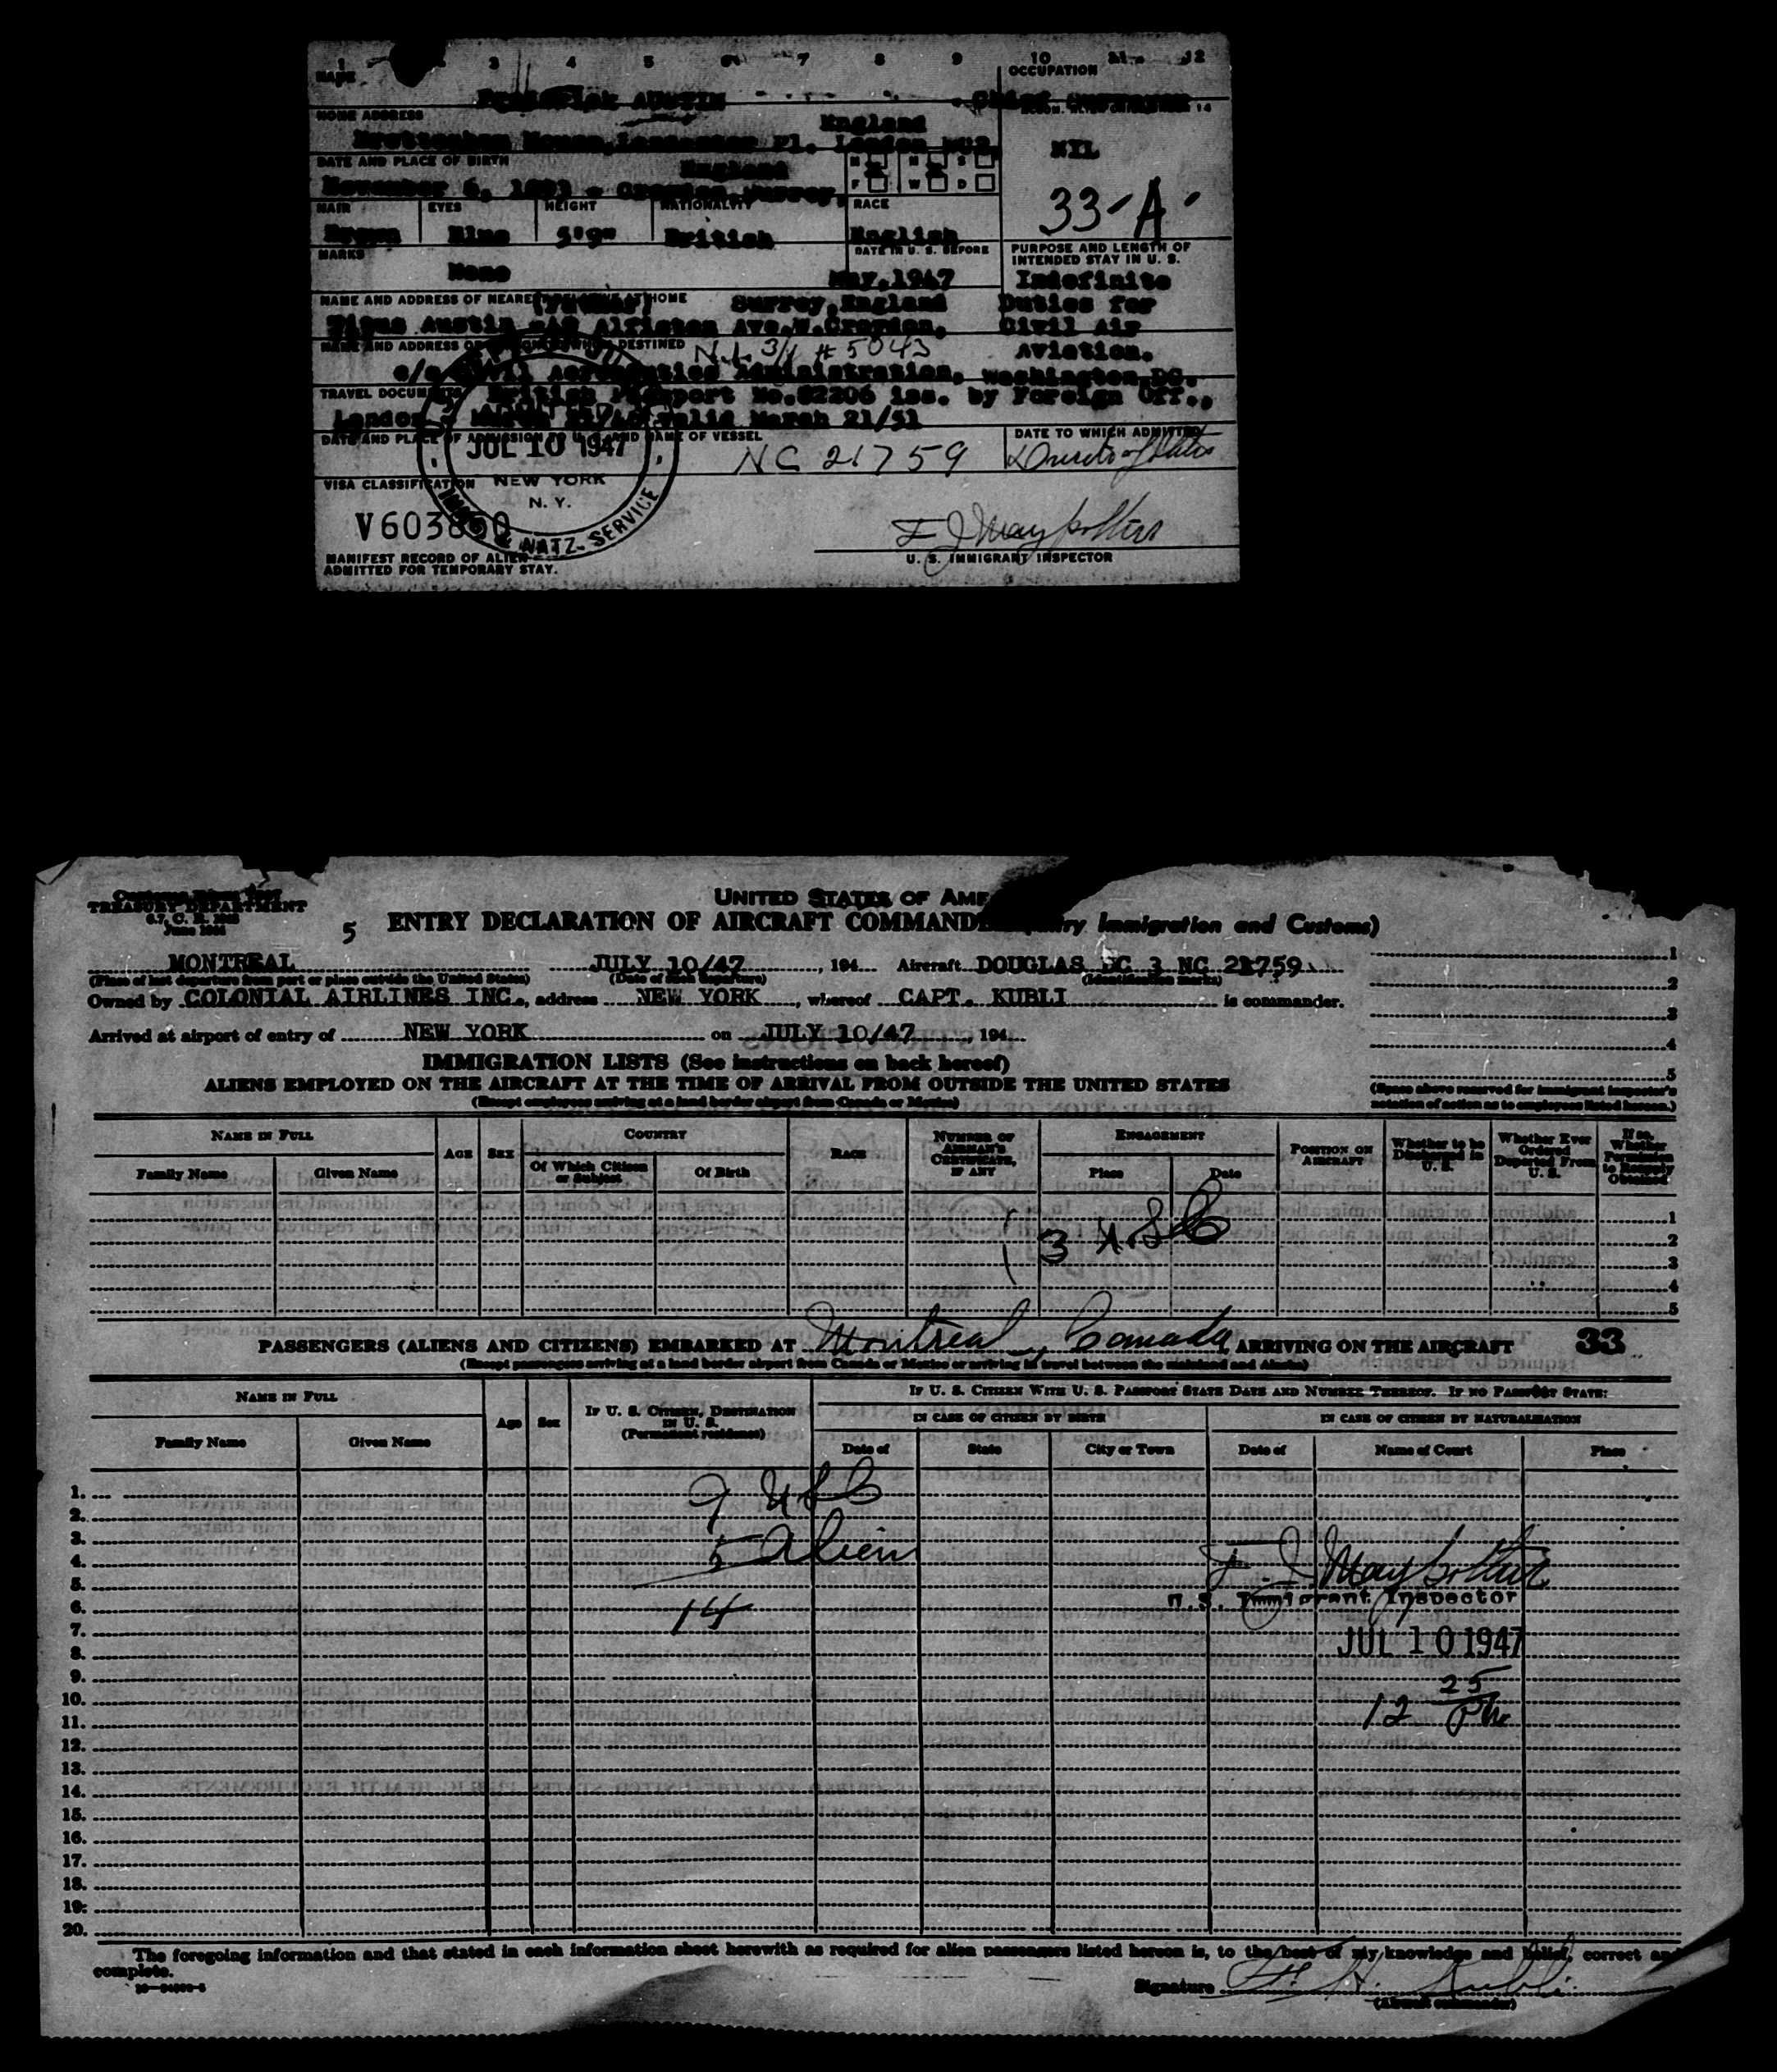 1 3 4 5 6 7 8 9 10 11 12
NAME
OCCUPATION
Frederick AUSTIN
HOME ADDRESS
14
England
London WC2,
NIL
DATE AND PLACE OF BIRTH
England
M M S
F W D
November 6, - Croydon, Surrey,
33-A
HAIR EYES HEIGHT NATIONALITY RACE
Brown Blue 5'9" British English
MARKS
DATE IN U. S. BEFORE
PURPOSE AND LENGTH OF
INTENDED STAY IN U. S.
None
May, 1947
Indefinite
NAME AND ADDRESS OF NEAREST RELATIVE AT HOME
Surrey, England
Duties for
Austin Ave. W. Croydon,
Civil Air
NAME AND ADDRESS DESTINED
N.L. 3/1 # 5043
Aviation.
c/o Civil Aeronautics Administration, Washington DC.
TRAVEL DOCUMENTS British Passport No.82206 iss. by Foreign Off.,
London valid March 21/51
DATE AND PLACE OF ADMISSION TO U. S. AND NAME OF VESSEL
DATE TO WHICH ADMITTED
JUL 10 1947
NC 21759
Duration of Status
VISA CLASSIFICATION
NEW YORK
N. Y.
IMMIG. & NATZ. SERVICE
V603850
F J Maybottur
MANIFEST RECORD OF ALIEN
ADMITTED FOR TEMPORARY STAY.
U. S. IMMIGRANT INSPECTOR
TREASURY DEPARTMENT
UNITED STATES OF AME
5 ENTRY DECLARATION OF AIRCRAFT COMMANDE Immigration and Customs)
MONTREAL JULY 10/47, 194 Aircraft DOUGLAS DC 3 NC 21759
(Place of last departure from port or place outside the United States) (Date of such departure) (Identification marks)
Owned by COLONIAL AIRLINES INC., address NEW YORK, whereof CAPT. KUBLI is commander.
Arrived at airport of entry of NEW YORK on JULY 10/47, 194
1
2
3
4
5
IMMIGRATION LISTS (See instructions on back hereof)
ALIENS EMPLOYED ON THE AIRCRAFT AT THE TIME OF ARRIVAL FROM OUTSIDE THE UNITED STATES
(Except employees arriving at a land border airport from Canada or Mexico)
(Space above reserved for immigrant inspector's
notation of action as to employees listed hereon.)
NAME IN FULL
Family Name Given Name
AGE SEX
COUNTRY
Of Which Citizen or Subject Of Birth
RACE
NUMBER OF AIRMAN'S CERTIFICATE, IF ANY
ENGAGEMENT
Place Date
POSITION ON AIRCRAFT
Whether to be Discharged in U. S.
Whether Ever Ordered Deported From U. S.
If so, Whether Permission to Reapply Obtained
3 USC
1
2
3
4
5
PASSENGERS (ALIENS AND CITIZENS) EMBARKED AT Montreal, Canada, ARRIVING ON THE AIRCRAFT 33
(Except passengers arriving at a land border airport from Canada or Mexico or arriving in travel between the mainland and Alaska)
NAME IN FULL
Family Name Given Name
Age Sex
IF U. S. CITIZEN, DESTINATION IN U. S.
(Permanent residence)
IF U. S. CITIZEN WITH U. S. PASSPORT STATE DATE AND NUMBER THEREOF. IF NO PASSPORT STATE:
IN CASE OF CITIZEN BY BIRTH IN CASE OF CITIZEN BY NATURALIZATION
Date of State City or Town Date of Name of Court Place
1.
9 USC
2.
3.
5 Alien
4.
F. J. Maybottur
5.
U.S. Immigrant Inspector
6.
14
7.
JUL 10 1947
8.
9.
12 25 PM
10.
11.
12.
13.
14.
15.
16.
17.
18.
19.
20.
The foregoing information and that stated in each information sheet herewith as required for alien passengers listed hereon is, to the best of my knowledge and belief, correct and
complete.
Signature F. H. Kubli
(Aircraft commander)